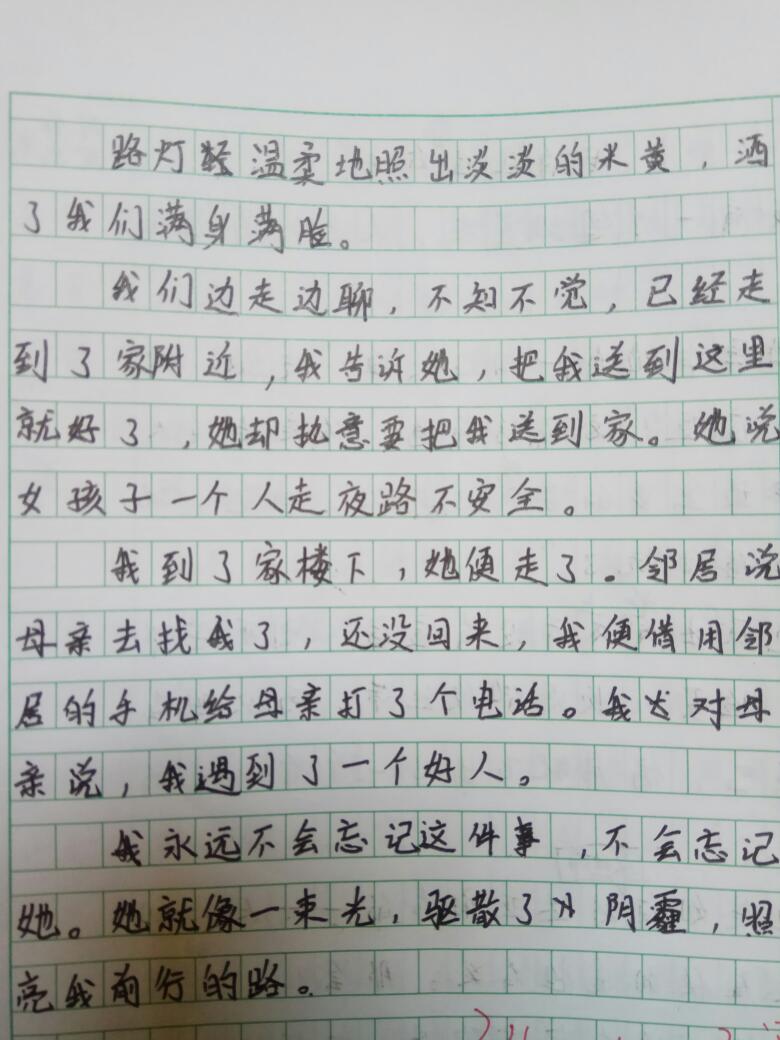 路灯温柔地照出淡淡的米黄，洒
了我们满身满脸。
我们边走边聊，不知不觉，已经走
到了家附近，我告诉她，把我送到这里
就好了，她却执意要把我送到家。她说
女孩子一个人走夜路不安全。
我到了家楼下，她便走了。邻居说
母亲去找我了，还没回来，我便借用邻
居的手机给母亲打了个电话。我对母
亲说，我遇到了一个好人。
我永远不会忘记这件事，不会忘记
她。她就像一束光，驱散了阴霾，照
亮我前行的路。